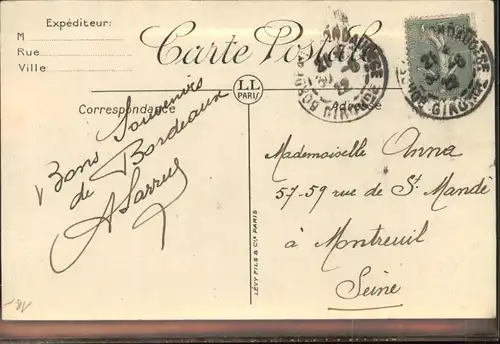 Expéditeur:
M
Rue
Ville
Carte Postale
LL
PARIS
Correspondance
Adresse
Bons Souvenirs
de Bordeaux
Mademoiselle Anna
57-59 rue de St Mandé
à Montreuil
Seine
LÉVY FILS & Cie PARIS
GIRONDE
GIRONDE